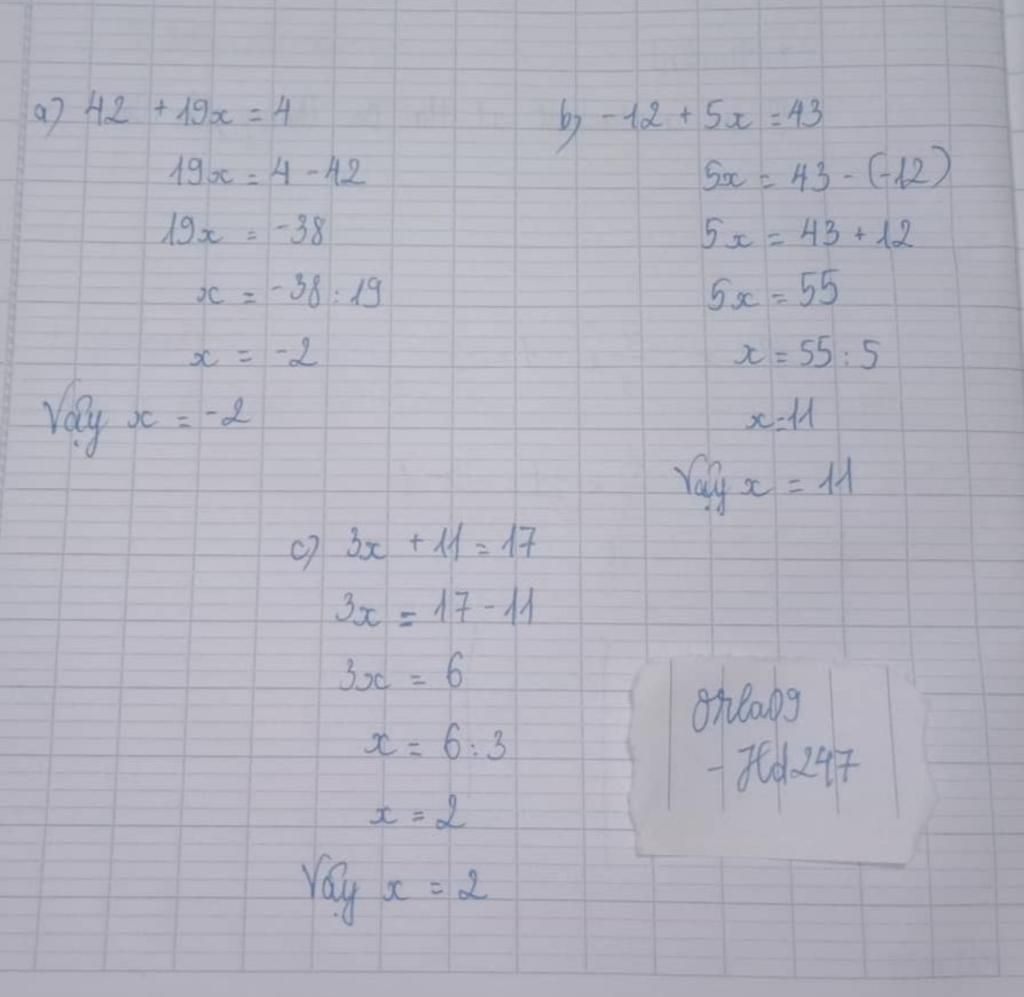 a) 42 + 19x = 4
19x = 4 - 42
19x = -38
x = -38 : 19
x = -2
Vậy x = -2
b) -12 + 5x = 43
5x = 43 - (-12)
5x = 43 + 12
5x = 55
x = 55 : 5
x = 11
Vậy x = 11
c) 3x + 11 = 17
3x = 17 - 11
3x = 6
x = 6 : 3
x = 2
Vậy x = 2
- Hd247